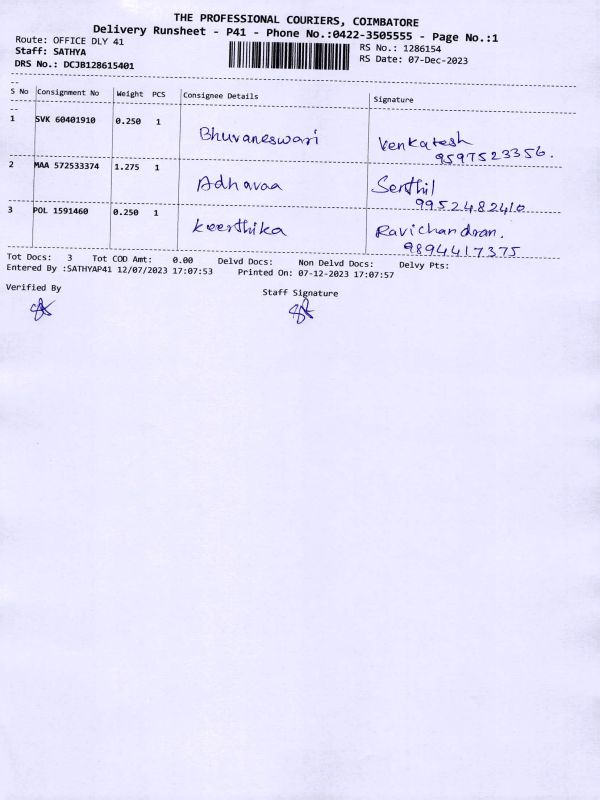 THE PROFESSIONAL COURIERS, COIMBATORE
Delivery Runsheet - P41 - Phone No.:0422-3505555 - Page No.:1
Route: OFFICE DLY 41
RS No.: 1286154
Staff: SATHYA
RS Date: 07-Dec-2023
DRS No.: DCJB128615401
S No Consignment No Weight PCS Consignee Details Signature
1 SVK 60401910 0.250 1 Bhuvaneswari Venkatesh
9597523356.
2 MAA 572533374 1.275 1 Adhavaa Senthil
9952482410
3 POL 1591460 0.250 1 Keerthika Ravichandran.
9894417375
Tot Docs: 3 Tot COD Amt: 0.00 Delvd Docs: Non Delvd Docs: Delvy Pts:
Entered By :SATHYAP41 12/07/2023 17:07:53 Printed On: 07-12-2023 17:07:57
Verified By Staff Signature